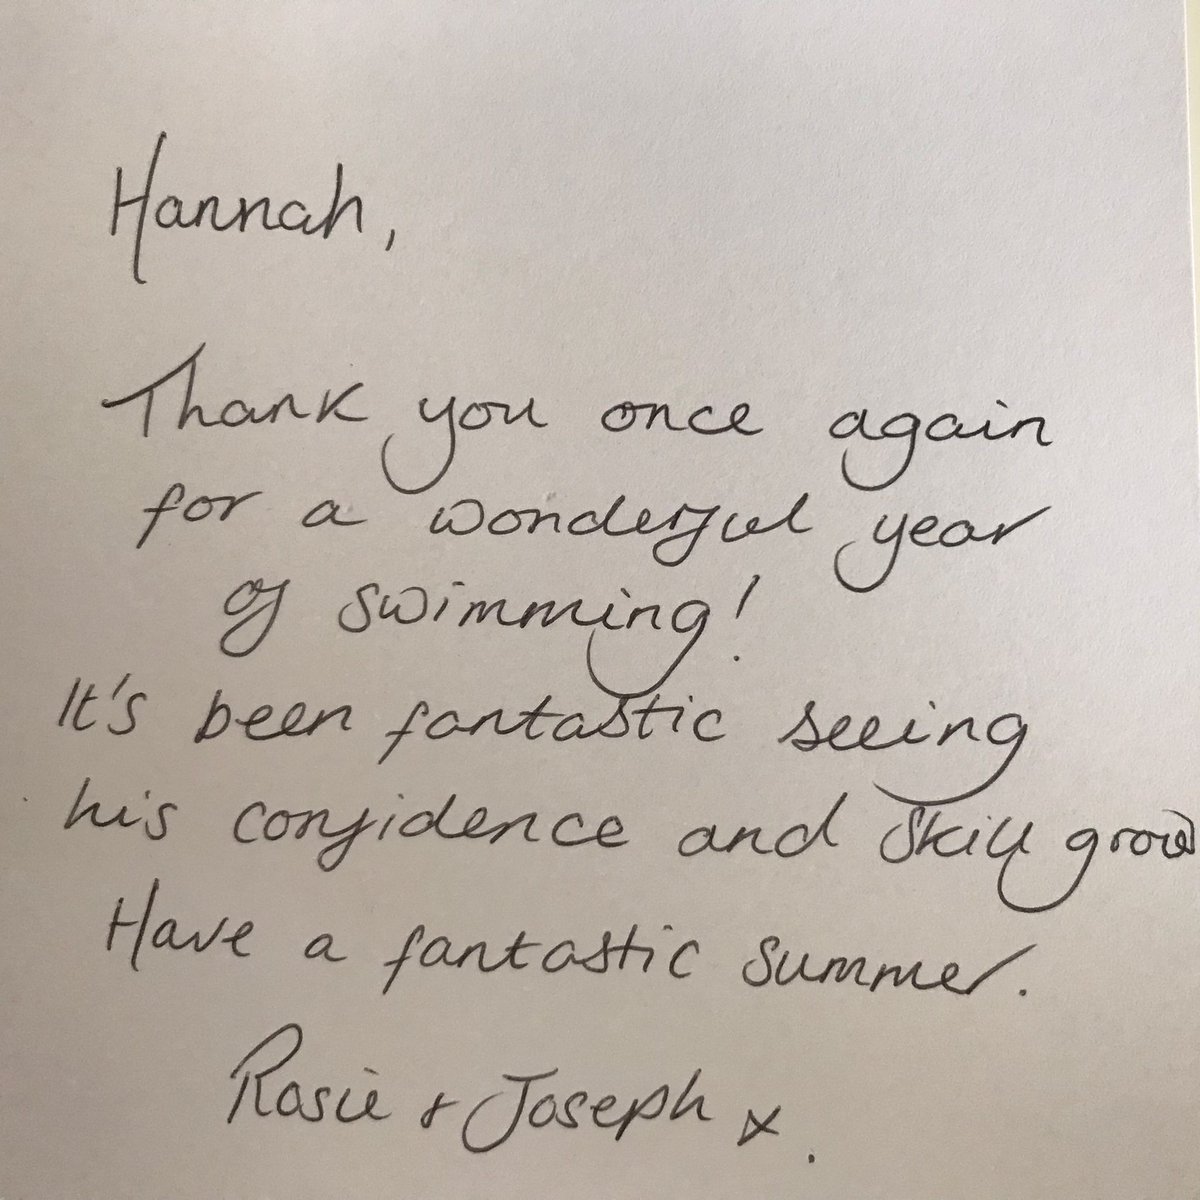 Hannah,
Thank you once again
for a wonderful year
of swimming!
It's been fantastic seeing
his confidence and skill grow
Have a fantastic summer.
Rosie + Joseph x.